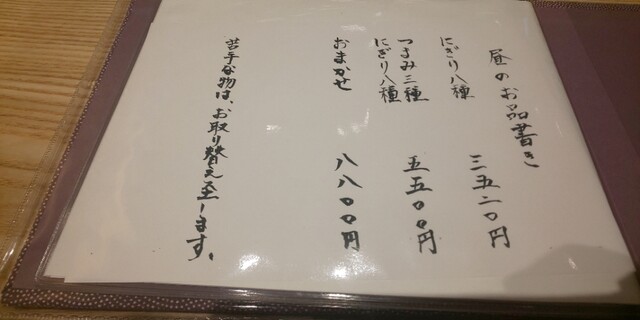 昼のお品書き
にぎり八種 三五二〇円
つまみ三種
にぎり八種 五五〇〇円
おまかせ 八八〇〇円
苦手な物は、お取り替え致します。